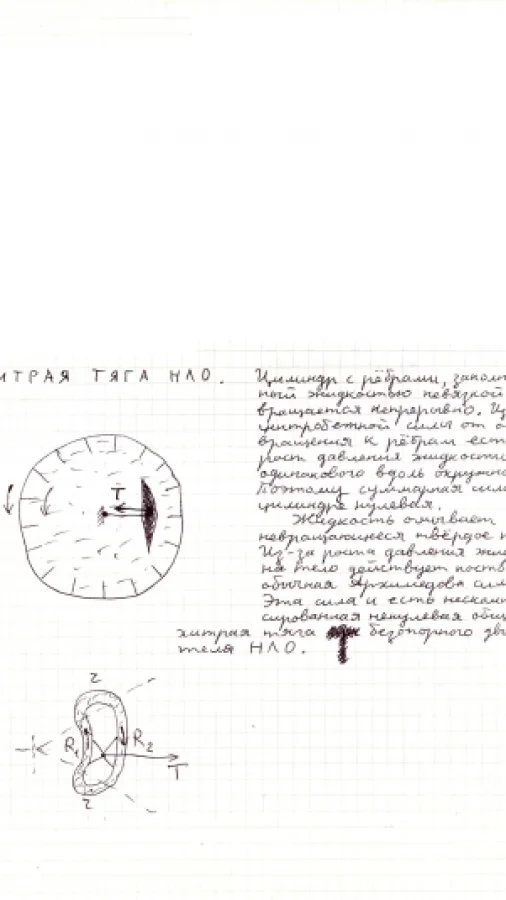 ИТРАЯ ТЯГА НЛО.
Цилиндр с рёбрами, заполн
ный жидкостью невязкой
вращается непрерывно. Ц
центробежной силы от о
вращения к рёбрам ест
рост давления жидкости
одинакового вдоль окружно
Поэтому суммарная сил
цилиндре нулевая.
Жидкость омывает
невращающееся твёрдое т
Из-за роста давления жид
на тело действует пост
обычная Архимедова сил
Эта сила и есть нескомп
сированная ненулевая общ
хитрая тяга безопорного дв
теля НЛО.
T
r
R₁ R₂
T
r